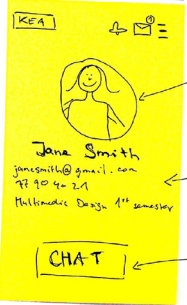 KEA
Jane Smith
janesmith@gmail.com
77 90 40 21
Multimedia Design 1st semester
CHAT